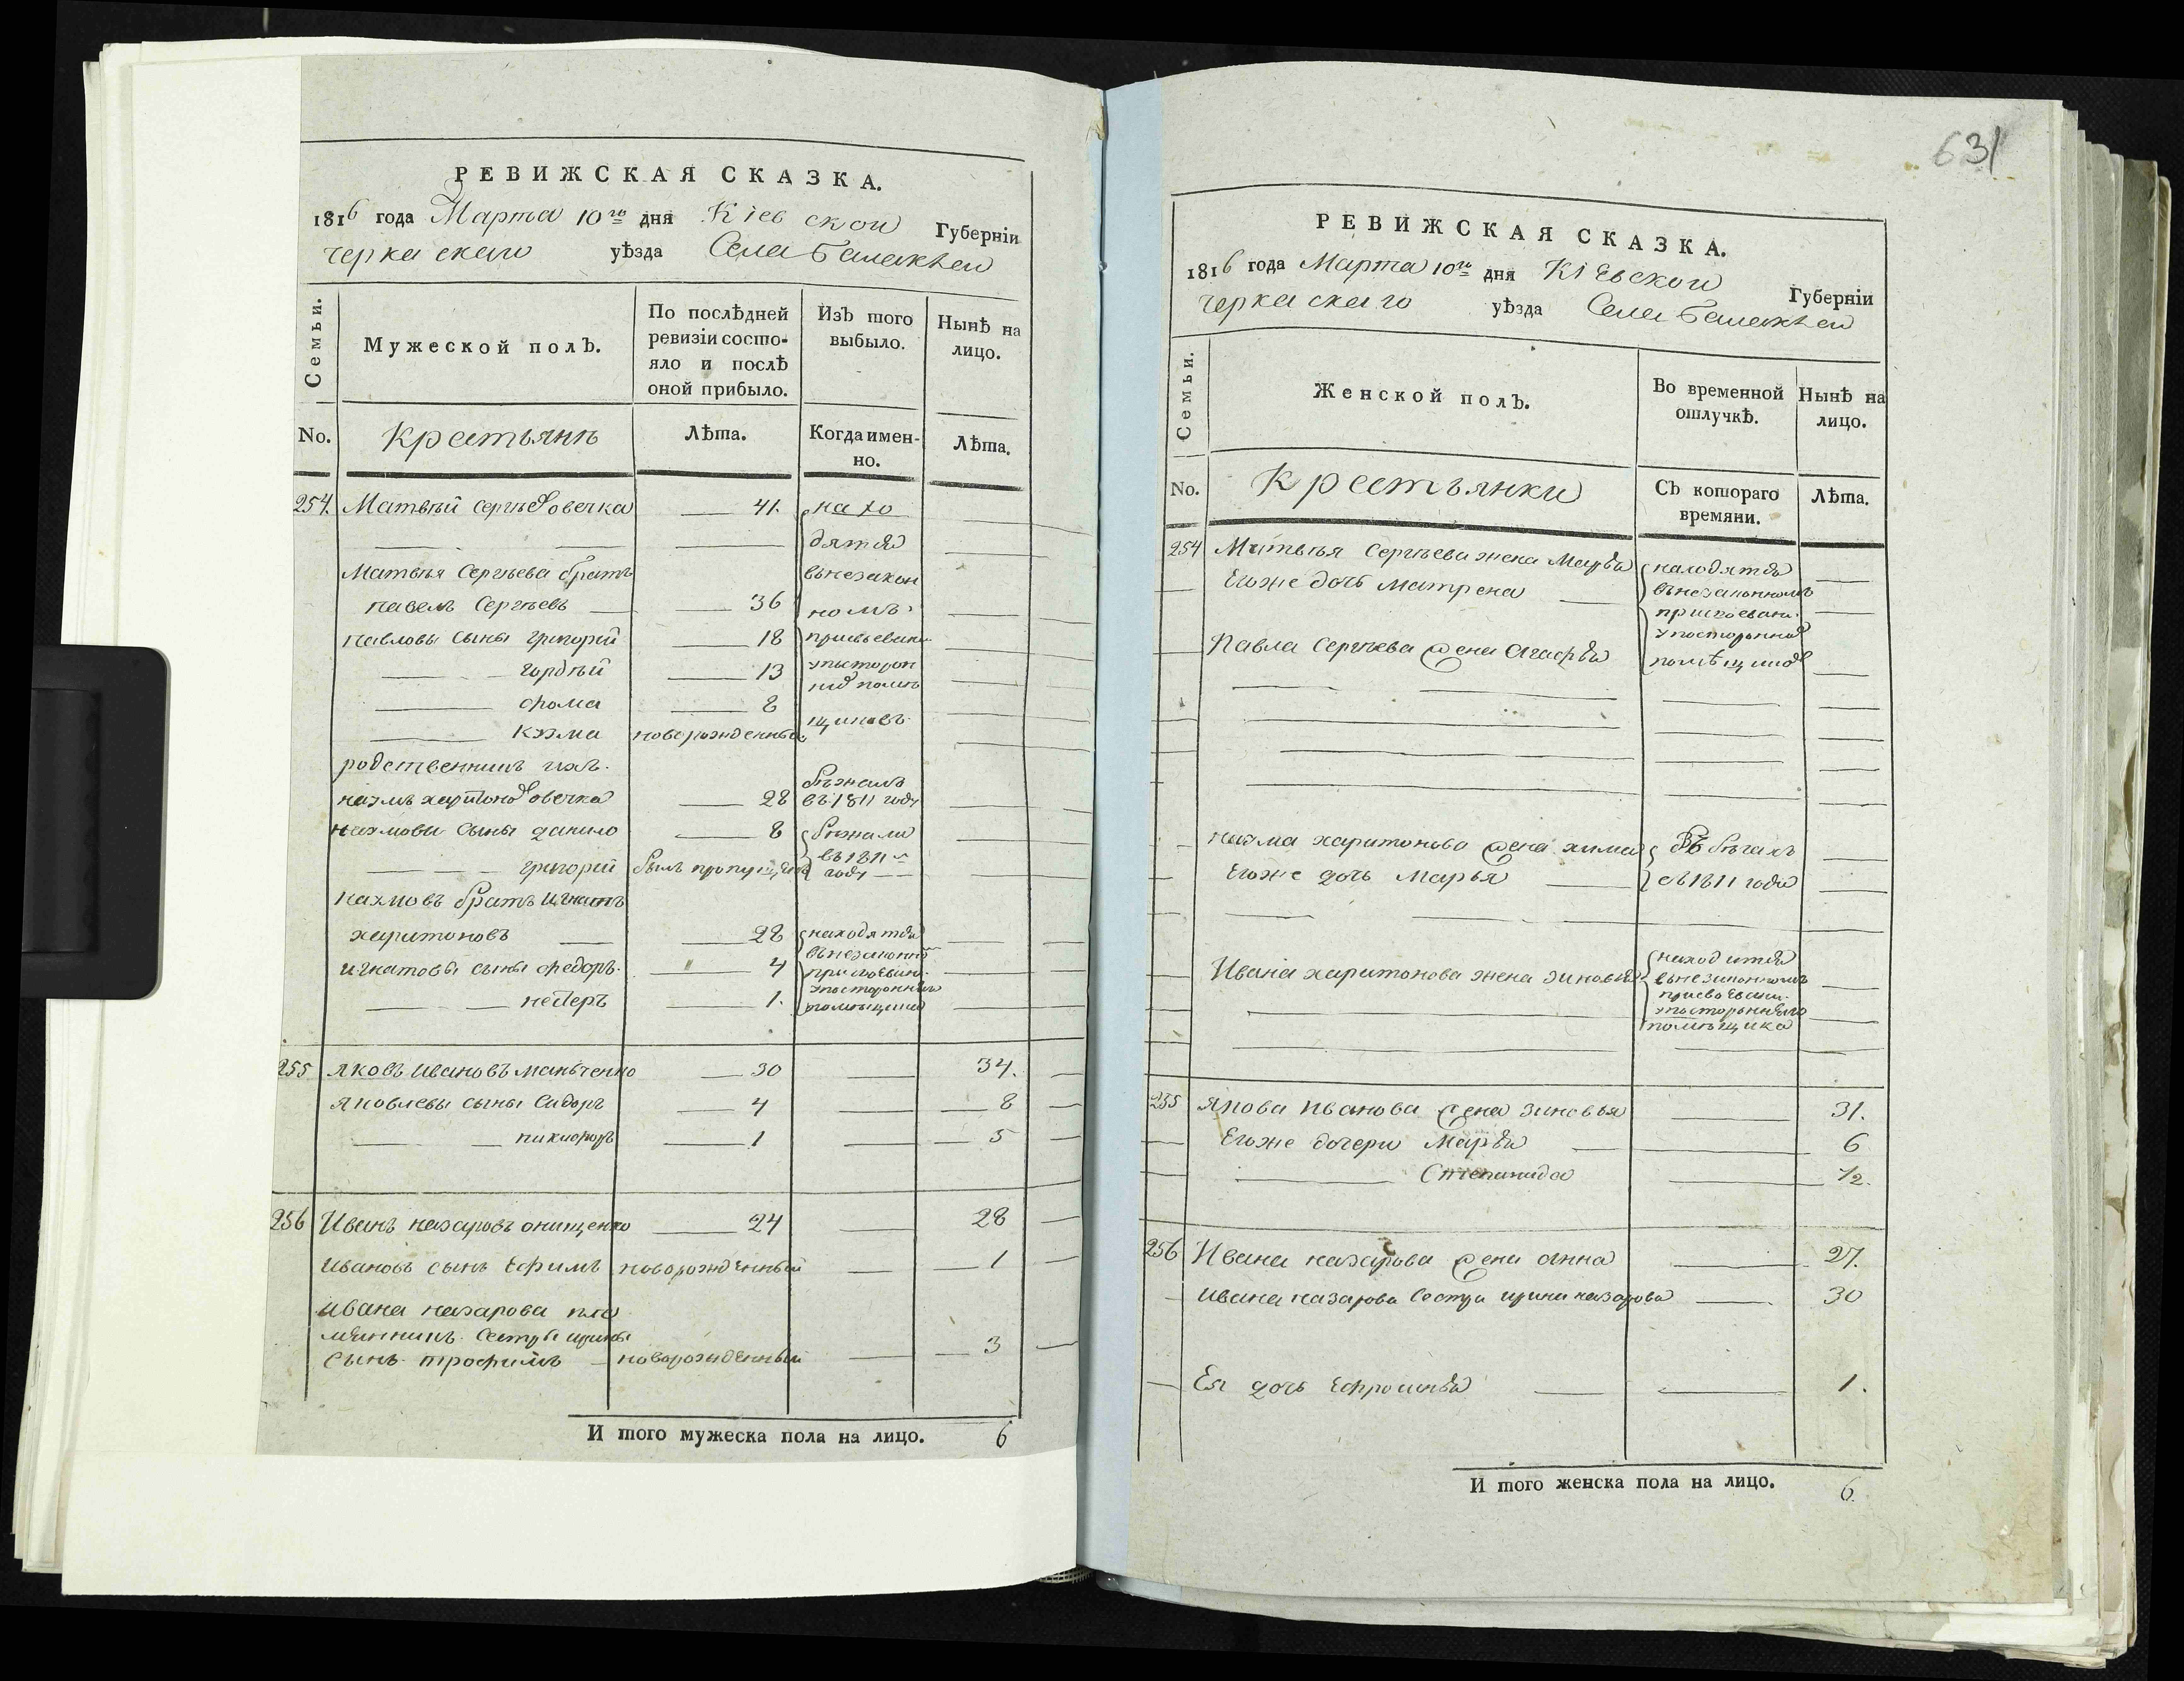 РЕВИЖСКАЯ СКАЗКА.
1816 года Марта 10го дня Кіевской Губерніи
черкаскаго уѣзда Села Балаклеи
Семьи.
Мужеской полъ.
По послѣдней ревизіи состояло и послѣ оной прибыло.
Изъ того выбыло.
Нынѣ на лицо.
No.
Крестьянѣ
Лѣта.
Когда именно.
Лѣта.
254. Матвѣй Сергѣев овечка 41. нахо
дятся
Матвѣя Сергѣева братъ в незакон
павелъ Сергѣевъ 36 номъ
павловы сыны григорій 18 присвоении
гордѣй 13 у посторон
фома 8 них помѣ
кузма новорожденный щиковъ
родственникъ ихъ
наумъ харитонов овечка 28 бѣжалъ въ 1811 году
наумовы сыны данило 8 бѣжали
григорій былъ пропущенъ въ 1811м году
наумовъ братъ игнатъ
харитоновъ 28 находятся
игнатовы сыны федоръ 4 в незаконном присвоении
нестеръ 1. у посторонняго помѣщика
255 яковъ Ивановъ манченко 30 34.
яковлевы сыны Сидоръ 4 8
никифоръ 1 5
256 Иванъ назаровъ онищенко 24 28
ивановъ сынъ Ефимъ новорожденный 1
ивана назарова пле
мянникъ Сестры ирины
сынъ трофимъ новорожденный 3
И того мужеска пола на лицо. 6
631
РЕВИЖСКАЯ СКАЗКА.
1816 года Марта 10го дня Кіевской Губерніи
черкаскаго уѣзда Села Балаклеи
Семьи.
Женской полъ.
Во временной отлучкѣ.
Нынѣ на лицо.
No.
Крестьянки
Съ котораго времяни.
Лѣта.
254 Матвѣя Сергѣева жена Марья находятся
Егоже дочь Матрена в незаконномъ
присвоении
у посторонних
Павла Сергѣева жена Агафья помѣщиков
наума харитонова жена химя в бѣгахъ
Егоже дочь Марья с 1811 года
Ивана харитонова жена зиновья находится
в незаконномъ
присвоении
у посторонняго
помѣщика
255 якова Иванова жена зиновья 31.
Егоже дочери Марья 6
Степанида 1/2.
256 Ивана назарова жена анна 27.
ивана назарова Сестра ирина назарова 30
Ея дочь Ефросинья 1.
И того женска пола на лицо. 6.